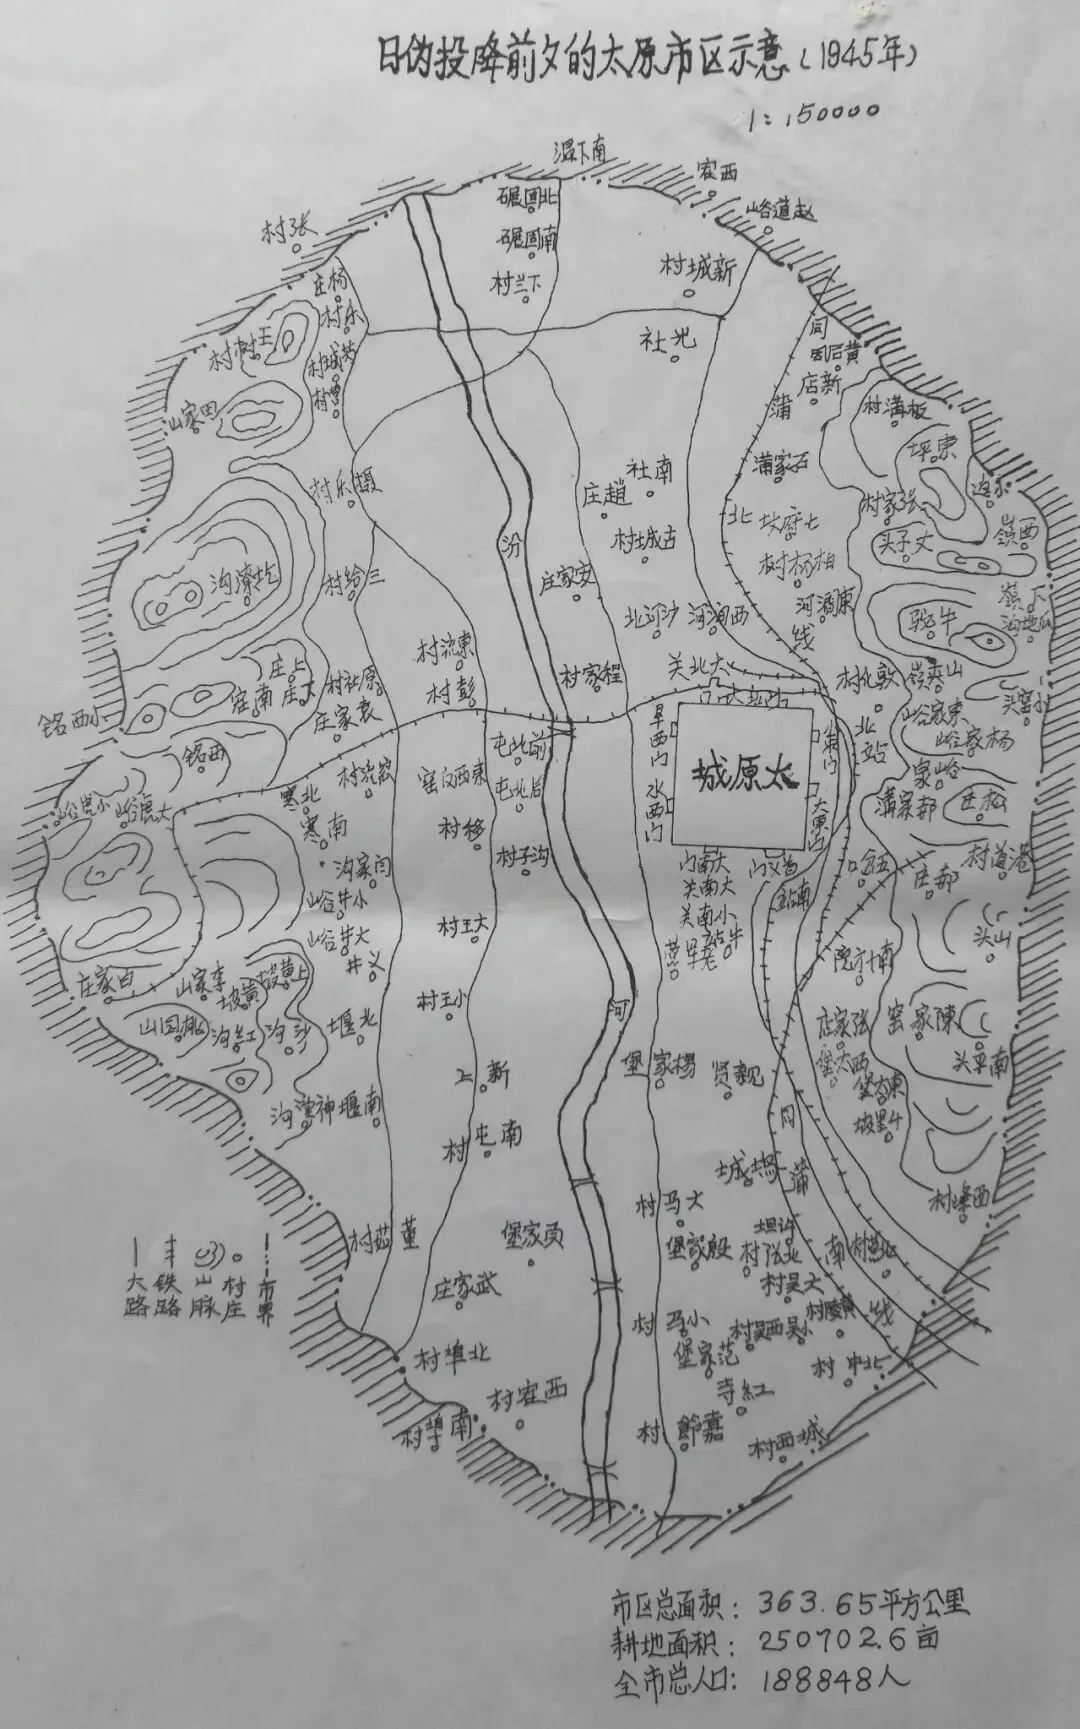 日伪投降前夕的太原市区示意(1945年)
1:150000
温下南
窑西
峪道赵
村张
碾固北
碾固南
村兰下
村城新
庄杨
村乐
村树王
社光
同
店新
蒲
山家田
村溝板
坪东
溝家石
社南
庄趙
村城古
村乐摄
村家张
北
坟府七
树杨柏
头子丈
嶺西
汾
沟潦圪
村给三
庄家安
北河沙
河涧西
河澗東
线
驼牛
嶺下
沟地瓜
村流東
村彭
村家程
关北大
村化敦
嶺夹山
头窑小
庄上
窑南
庄大
村社原
庄家袁
铭西小
铭西
旱西门
城原太
小東门
北站
峪家東
峪家杨
家峪
屯北前
屯北后
窑仪西東
寒北
寒南
峪虎小
峪虎大
水西门
大東门
溝家郝
庄松
村移
村子沟
沟家闫
峪井小
峪井大
井义
门南大
关南大
关南小
门义首
站南
口台五
庄郝
村道港
头山
村王大
村王小
站牛
庄家白
山家李
坡黄
坡黄上
山园桃
沟红
沟沙
堰北
河
院坊南
庄家张
窑家陳
头平南
堡太西
堡太東
坡黑牛
堡家楊
贤親
上新
村屯南
沟溝神堰南
同
蒲
南
线
城塢
村峰西
村茹董
堡家员
村马大
堡家殷
坦许
村张北
村吴大
庄家武
村马小
堡家范
村吴西吴小
村陵黄
村中北
寺紅
村埠北
村窑西
村埠南
村節嘉
村西城
大路
铁路
山脉
村庄
市界
市区总面积：363.65平方公里
耕地面积：250702.6亩
全市总人口：188848人